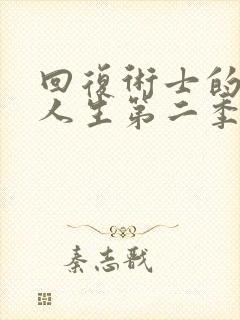 回復術士的
人生第二季
秦志戬